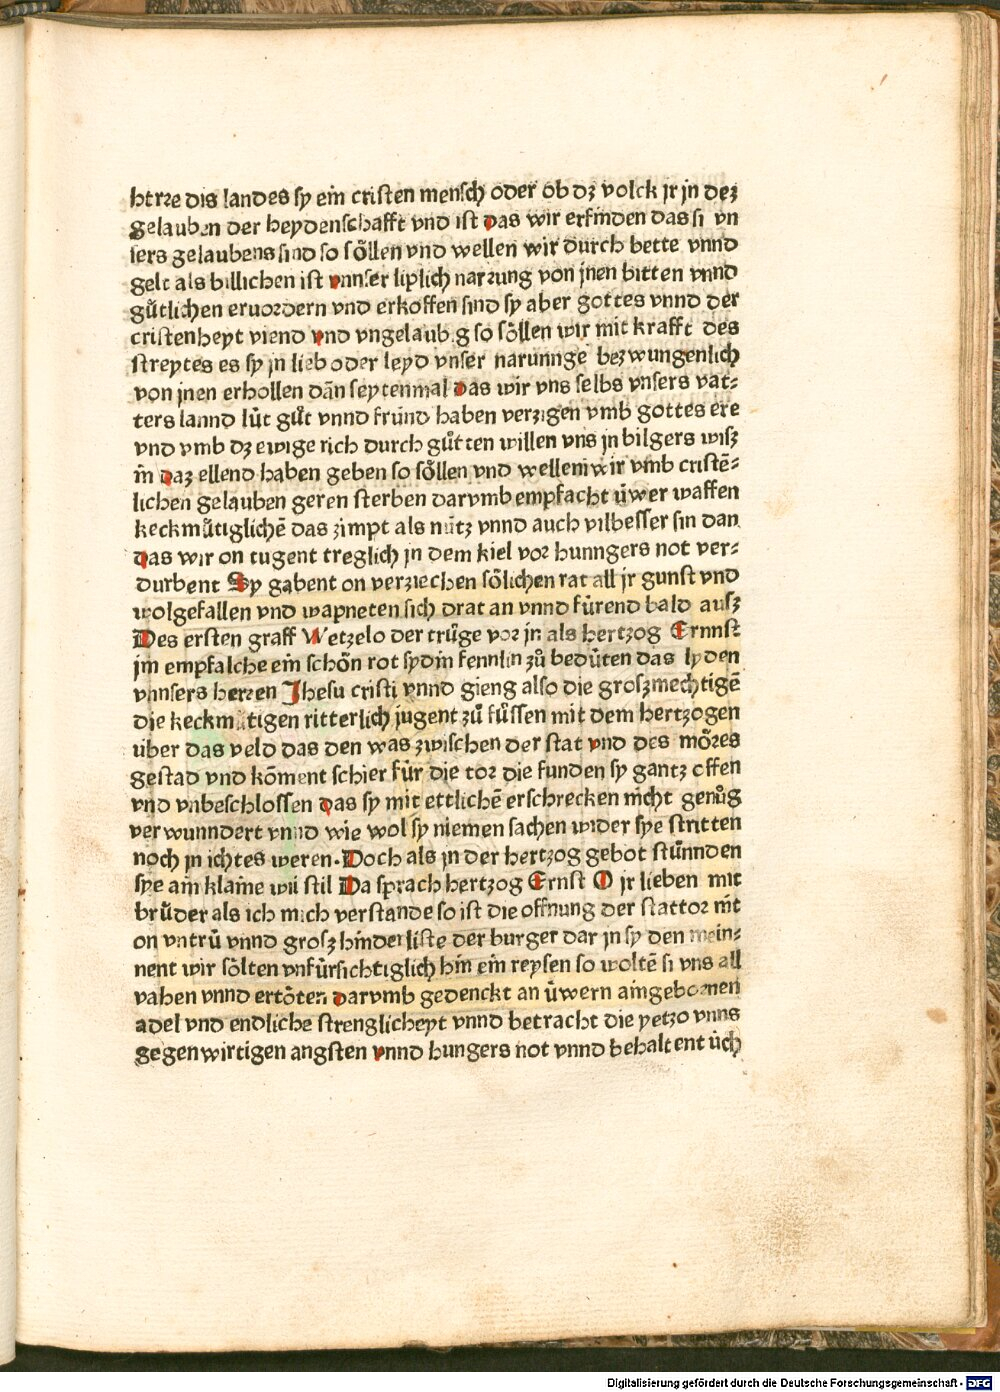 herre dis landes sy ein cristen mensch oder ob dz volck jr jn dez
gelauben der heydenschafft vnd ist das wir erfinden das si vn
sers gelaubens sind so söllen vnd wellen wir durch bette vnnd
gelt als billichen ist vnnser liplich narzung von jnen bitten vnnd
gůtlichen eruordern vnd erkoffen sind sy aber gottes vnnd der
cristenheyt viend vnd vngelaubig so söllen wir mit krafft des
streytes es sy jn lieb oder leyd vnser narunnge bezwungenlich
von jnen erhollen dān seytenmal das wir vns selbs vnsers vat⸗
ters lannd lüt gůt vnnd fründ haben verzigen vmb gottes ere
vnd vmb dz ewige rich durch gůtten willen vns jn bilgers wisz
in̄ daz ellend haben geben so söllen vnd wellen wir vmb cristē⸗
lichen gelauben geren sterben darvmb empfacht üwer waffen
keckmůtiglichē das zimpt als nütz vnnd auch vilbesser sin dan
das wir on tugent treglich jn dem kiel vor hunngers not ver⸗
durbent Sy gabent on verziechen sölichen rat all jr gunst vnd
wolgefallen vnd wapneten sich drat an vnnd fürend bald ausz
Des ersten graff Wetzelo der trůge vor jn als hertzog Ernnst
jm empfalche ein schön rot sydin fennlin zů bedüten das lyden
vnnsers herren Jhesu cristi vnnd gieng also die groszmechtigē
die keckmůtigen ritterlich jugent zů füssen mit dem hertzogen
über das veld das den was zwischen der stat vnd des möres
gestad vnd kōment schier für die tor die funden sy gantz offen
vnd vnbeschlossen das sy mit ettlichē erschrecken nicht genůg
verwunndert vnnd wie wol sy niemen sachen wider sye stritten
noch jn ichtes weren. Doch als jn der hertzog gebot stůnnden
sye am klaine wil stil Da sprach hertzog Ernst O jr lieben mit
brůder als ich mich verstande so ist die offnung der stattor nit
on vntrü vnnd grosz hinderliste der burger dar jn sy den mein⸗
nent wir sölten vnfürsichtiglich hin ein reysen so woltē si vns all
vahen vnnd ertöten darvmb gedenckt an üwern aingebornen
adel vnd endliche strenglicheyt vnnd betracht die yetzo vnns
gegenwirtigen angsten vnnd hungers not vnnd behaltent üch
Digitalisierung gefördert durch die Deutsche Forschungsgemeinschaft - DFG